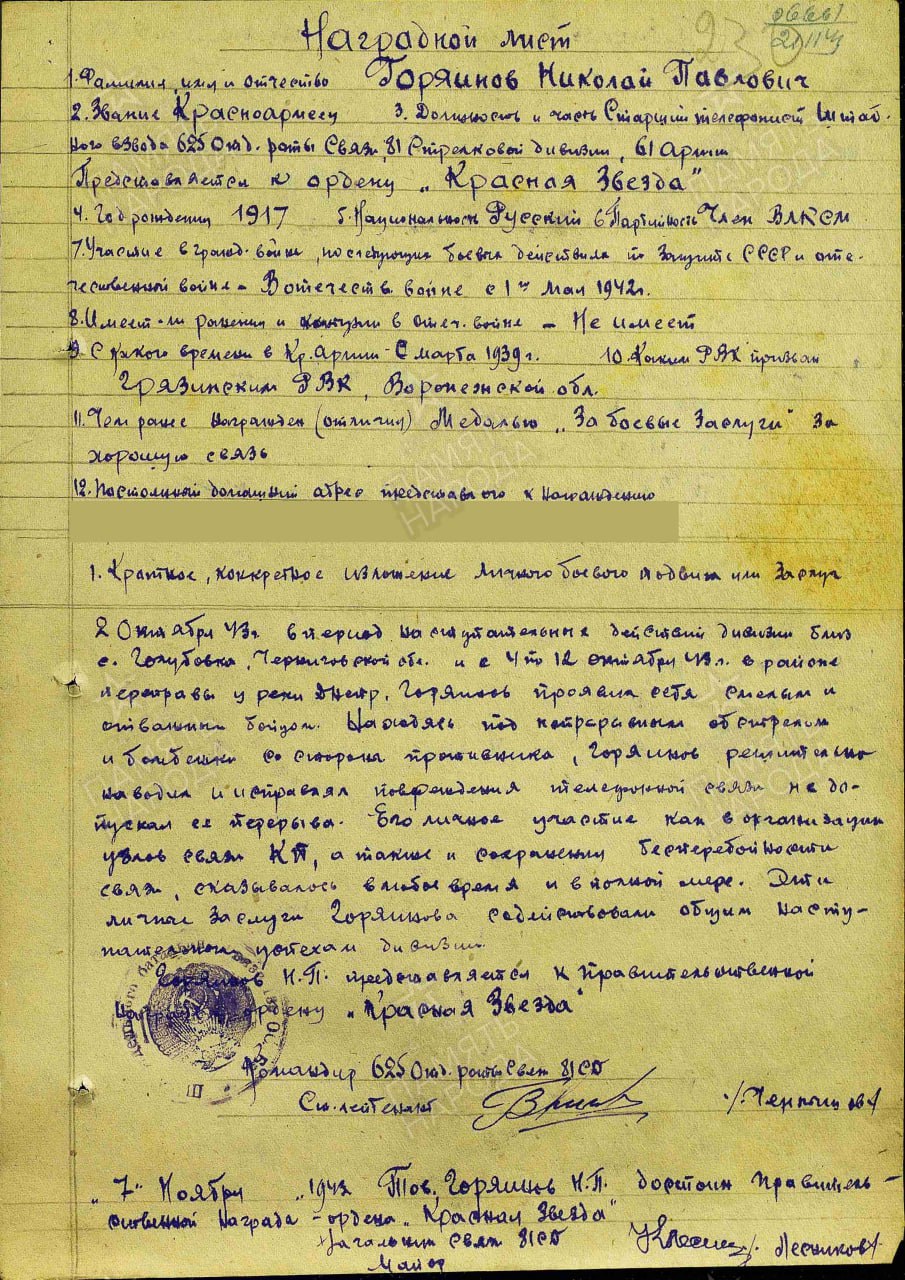 Наградной лист
1. Фамилия, имя и отчество Горяинов Николай Павлович
2. Звание Красноармеец 3. Должность и часть Старший телефонист Штаб-
ного взвода 625 Отд. роты Связи, 81 Стрелковой дивизии, 61 Армии
Представляется к ордену „Красная Звезда"
4. Год рождения 1917 5. Национальность Русский 6 Партийность Член ВЛКСМ
7. Участие в гражд. войне, последующих боевых действиях по защите СССР и оте-
чественной войне - В отечеств. войне с 1го мая 1942 г.
8. Имеет-ли ранения и контузии в отеч. войне - Не имеет
9. С какого времени в Кр. Армии - С марта 1939 г. 10. Каким РВК призван
Грязинским РВК, Воронежской обл.
11. Чем ранее награжден (отличия) Медалью „За боевые Заслуги" За
хорошую связь
12. Постоянный домашний адрес представляемого к награждению
1. Краткое, конкретное изложение личного боевого подвига или Заслуг
2 Октября 43 г. в период наступательных действий дивизии близ
с. Голубовка, Черниговской обл. и с 4 по 12 октября 43 г. в районе
переправы у реки Днепр, Горяинов проявил себя смелым и
отважным бойцом. Находясь под непрерывным обстрелом
и бомбежки со стороны противника, Горяинов решительно
наводил и исправлял повреждения телефонной связи не до-
пускал ее перерыва. Его личное участие как в организации
узлов связи КП, а также и сохранении бесперебойности
связи, сказывалось в любое время и в полной мере. Эти
личные Заслуги Горяинова содействовали общим насту-
пательным успехам дивизии.
Горяинов Н.П. представляется к правительственной
награде ордену „Красная Звезда"
Командир 625 Отд. роты Связи 81 СД
Ст. лейтенант
„7" Ноября 1943 Тов. Горяинов Н.П. достоин Правитель-
ственной Награды - ордена „Красная Звезда"
Начальник Связи 81 СД
Майор /Лесников/